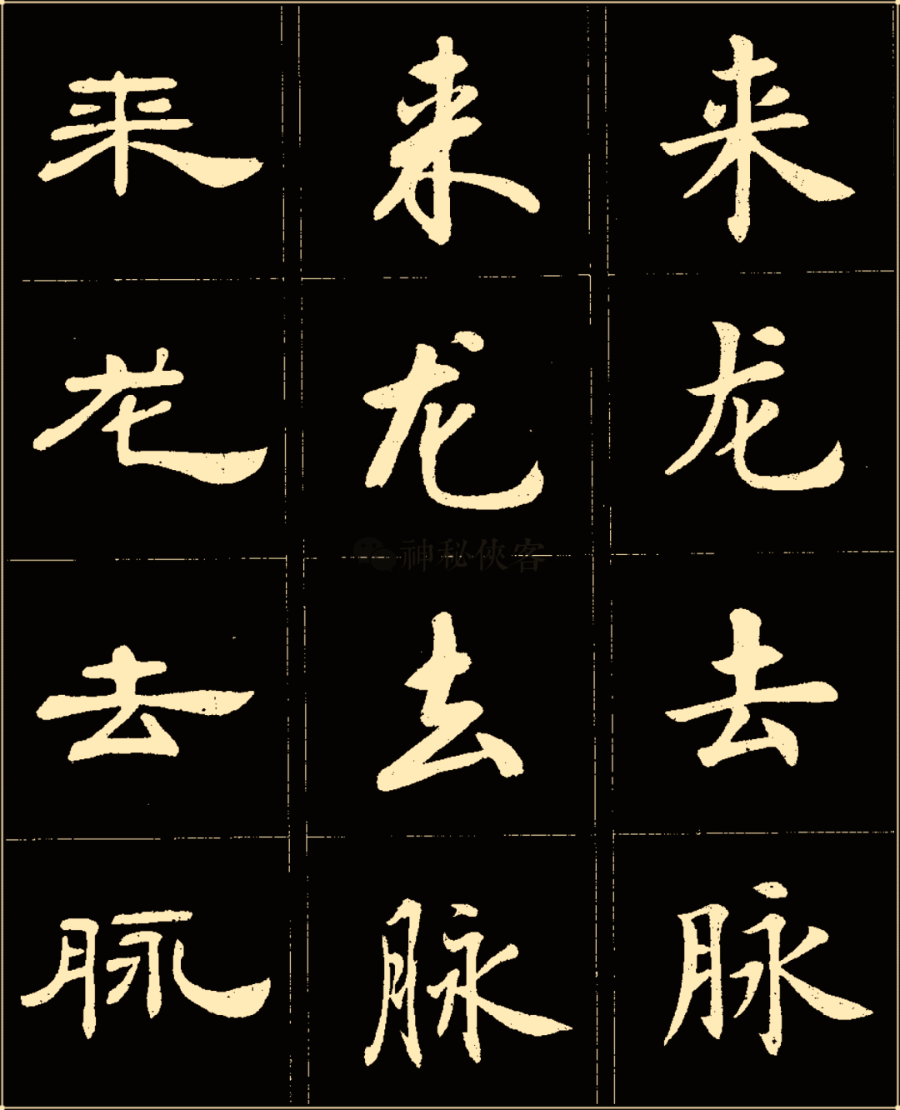 来 来 来
龙 龙 龙
去 去 去
脉 脉 脉
神秘侠客